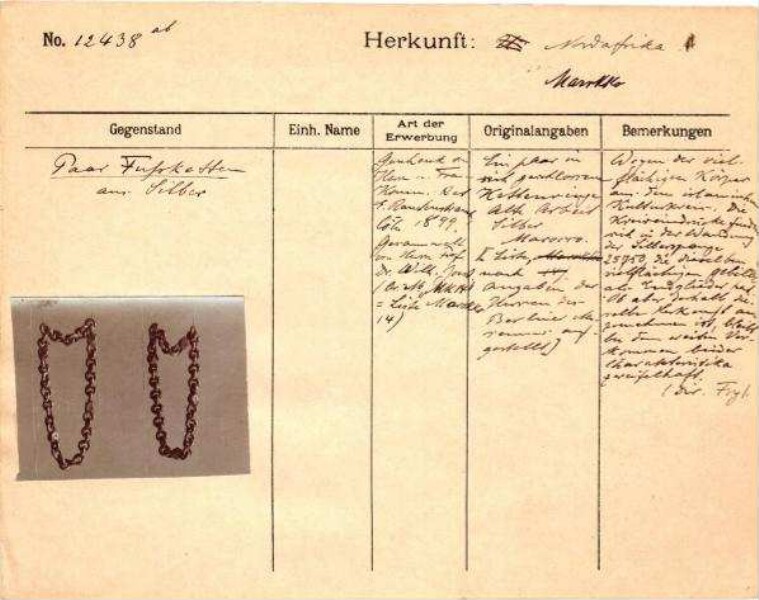 No. 12438 ab
Herkunft: Nordafrika
Marokko
Gegenstand
Einh. Name
Art der
Erwerbung
Originalangaben
Bemerkungen
Paar Fußketten
aus Silber
Geschenk d.
Herrn u. Frau
Komm. Rat
E. Rautenstrauch
Cöln 1899.
Gesammelt
von Herrn Prof.
Dr. Wilh. Joest
= Liste Marokko
14)
Ein paar in
sich geschlossene
Kettenringe
Alte Arbeit
Silber
Marocco.
Liste,
nach
Angaben der
Herren des
Berliner
Museums auf-
gestellt)
Wegen der viel-
flächigen Körper
aus dem islamischen
Kulturkreis. Die
Kreiseindrücke finden
sich in der Wandung
der Silberspange
25950, die dieselben
vielflächigen Gebilde
als Endglieder hat.
Ob aber deshalb die-
selbe Herkunft an-
zunehmen ist, bleibt
bei dem weiten Vor-
kommen beider
Charakteristika
zweifelhaft.
(Dir. Foy).